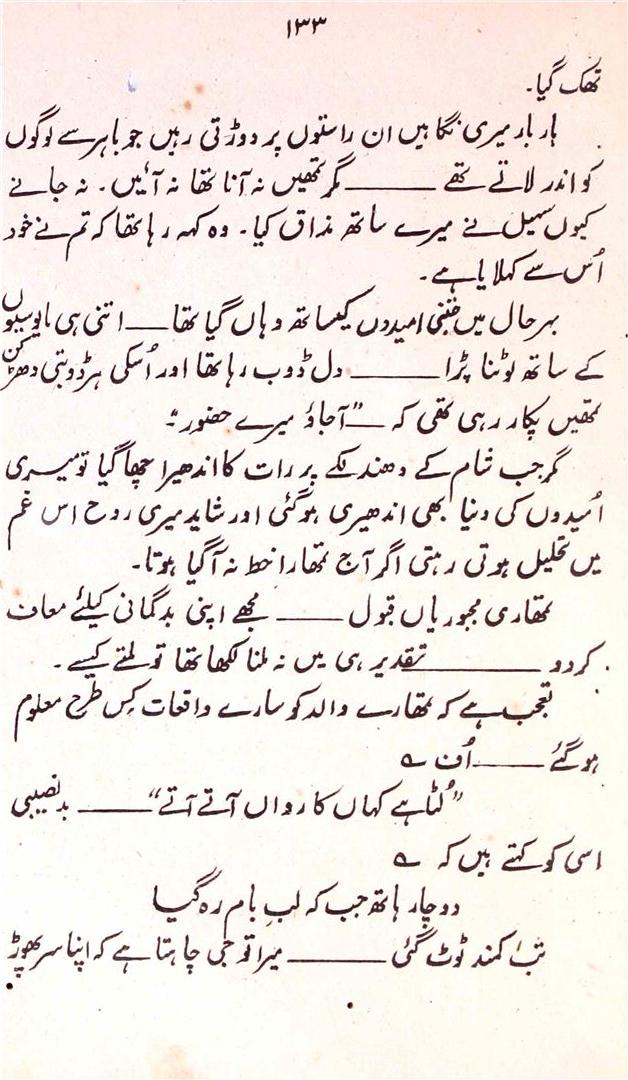 ۱۳۳
تھک گیا۔
بار بار میری نگاہیں ان راستوں پر دوڑتی رہیں جو باہر سے لوگوں
کو اندر لاتے تھے ——— مگر تمھیں نہ آنا تھا نہ آئیں۔ نہ جانے
کیوں سہیل نے میرے ساتھ مذاق کیا۔ وہ کہہ رہا تھا کہ تم نے خود
اُس سے کہلایا ہے۔
بہرحال میں جتنی امیدوں کیساتھ وہاں گیا تھا —— اتنی ہی مایوسیوں
کے ساتھ لوٹنا پڑا ——— دل ڈوب رہا تھا اور اُسکی ہر ڈوبتی دھڑکن
تمھیں پکار رہی تھی کہ —— "آجاؤ میرے حضور"۔
مگر جب شام کے دھندلکے پر رات کا اندھیرا چھا گیا تو میری
اُمیدوں کی دنیا بھی اندھیری ہوگئی اور شاید میری روح اس غم
میں تحلیل ہوتی رہتی اگر آج تمھارا خط نہ آگیا ہوتا۔
تمھاری مجبوریاں قبول ——— مجھے اپنی بدگمانی کیلئے معاف
کردو ——— تقدیر ہی میں نہ ملنا لکھا تھا تو ملتے کیسے۔
تعجب ہے کہ تمھارے والد کو سارے واقعات کِس طرح معلوم
ہوگئے ——— اُف ؎
"لُٹا ہے کہاں کارواں آتے آتے" ——— بدنصیبی
اسی کو کہتے ہیں کہ ؎
دو چار ہاتھ جب کہ لبِ بام رہ گیا
تب کمند ٹوٹ گئی ——— میرا تو جی چاہتا ہے کہ اپنا سر پھوڑ